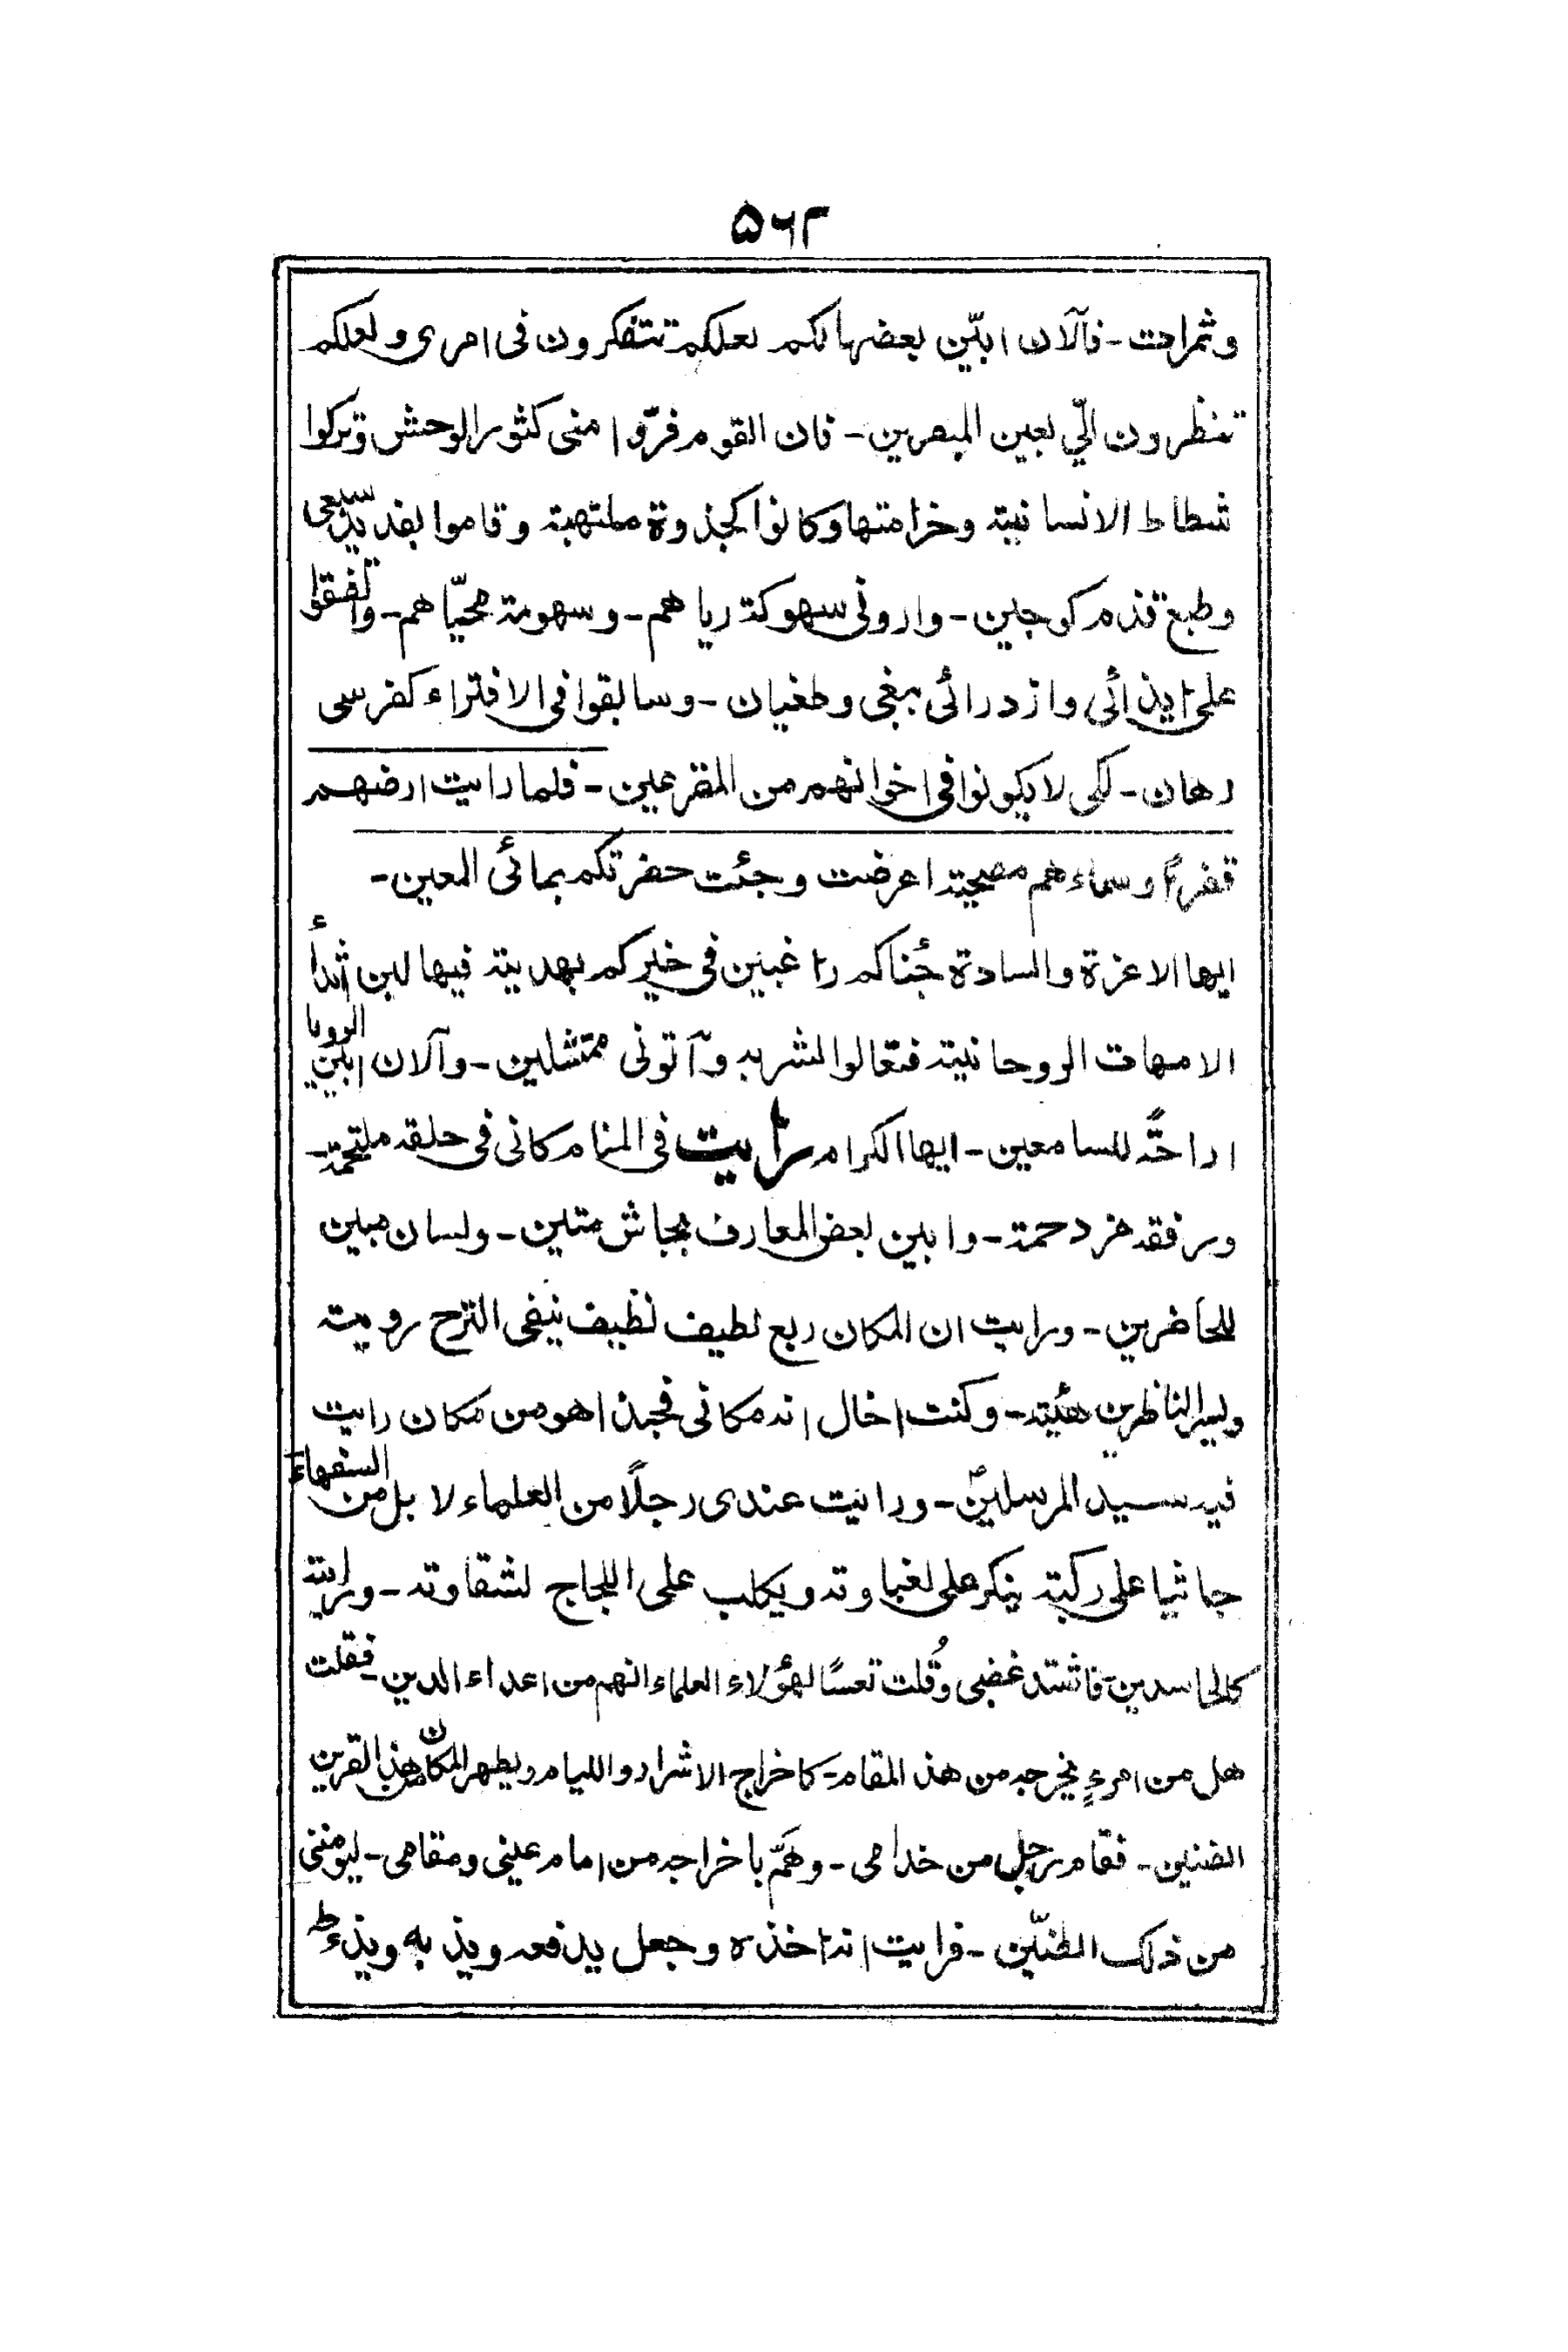 ۵۶۲
وثمرات ـ فالآن ابيّن بعضها لكم لعلكم تتفكرون فى امرى و لعلكم
تنظرون اليّ بعين المبصرين ـ فان القوم فرّوا منى كثور الوحش وتركوا
شطاط الانسانية وخزامتها وكانوا كجذوة ملتهبة وقاموا بفديد سبعى
وطبع قذم كوجين ـ وارونى سهوكة رياهم ـ وسهومة محيّاهم ـ واتفقوا
على ايذائى وازدرائى ببغى وطغيان ـ وسابقوا فى الافتراء كفرسى
رهان ـ لكى لا يكونوا فى اخوانهم من المقرعين ـ فلما رايت ارضهم
قفرًا وسماءهم مصحية اعرضت وجئت حضرتكم بمائى المعين ـ
ايها الاعزة والسادة جئناكم راغبين فى خيركم بهدية فيها لبن اثداء
الامهات الروحانية فتعالوا لشربه وآتونى ممتثلين ـ وآلان ابين الرويا
اراحةً للسامعين ـ ايها الكرام رأيت فى المنام كانى فى حلقة ملتحمة ـ
ورفقة مزدحمة ـ وابين بعض المعارف بجاش متين ـ ولسان مبين
للحاضرين ـ ورايت ان المكان ربع لطيف نظيف ينفى الترح رويته
ويسر الناظرين هيئته ـ وكنت اخال انه مكانى فحبذا هو من مكان رايت
فيه سيد المرسلينؐ ـ ورايت عندى رجلًا من العلماء لا بل من السفهاء
جاثيا على ركبته ينكر على لغباوته ويكلب على اللجاج لشقاوته ـ ورايته
كالحاسدين ـ فاشتد غضبى وقُلت تعسًا لهؤلاء العلماء انهم من اعداء الدين ـ فقلت
هل من امرءٍ يخرجه من هذا المقام ـ كاخراج الاشرار واللئام ويطهر المكان من هذا القرين
الضنين ـ فقام رجل من خدامى ـ وهَمّ باخراجه من امام عينى ومقامى ـ ليؤمننى
من ذلك الظنّين ـ فرايت انه اخذه وجعل يدفعه ويذبه ويذءطه